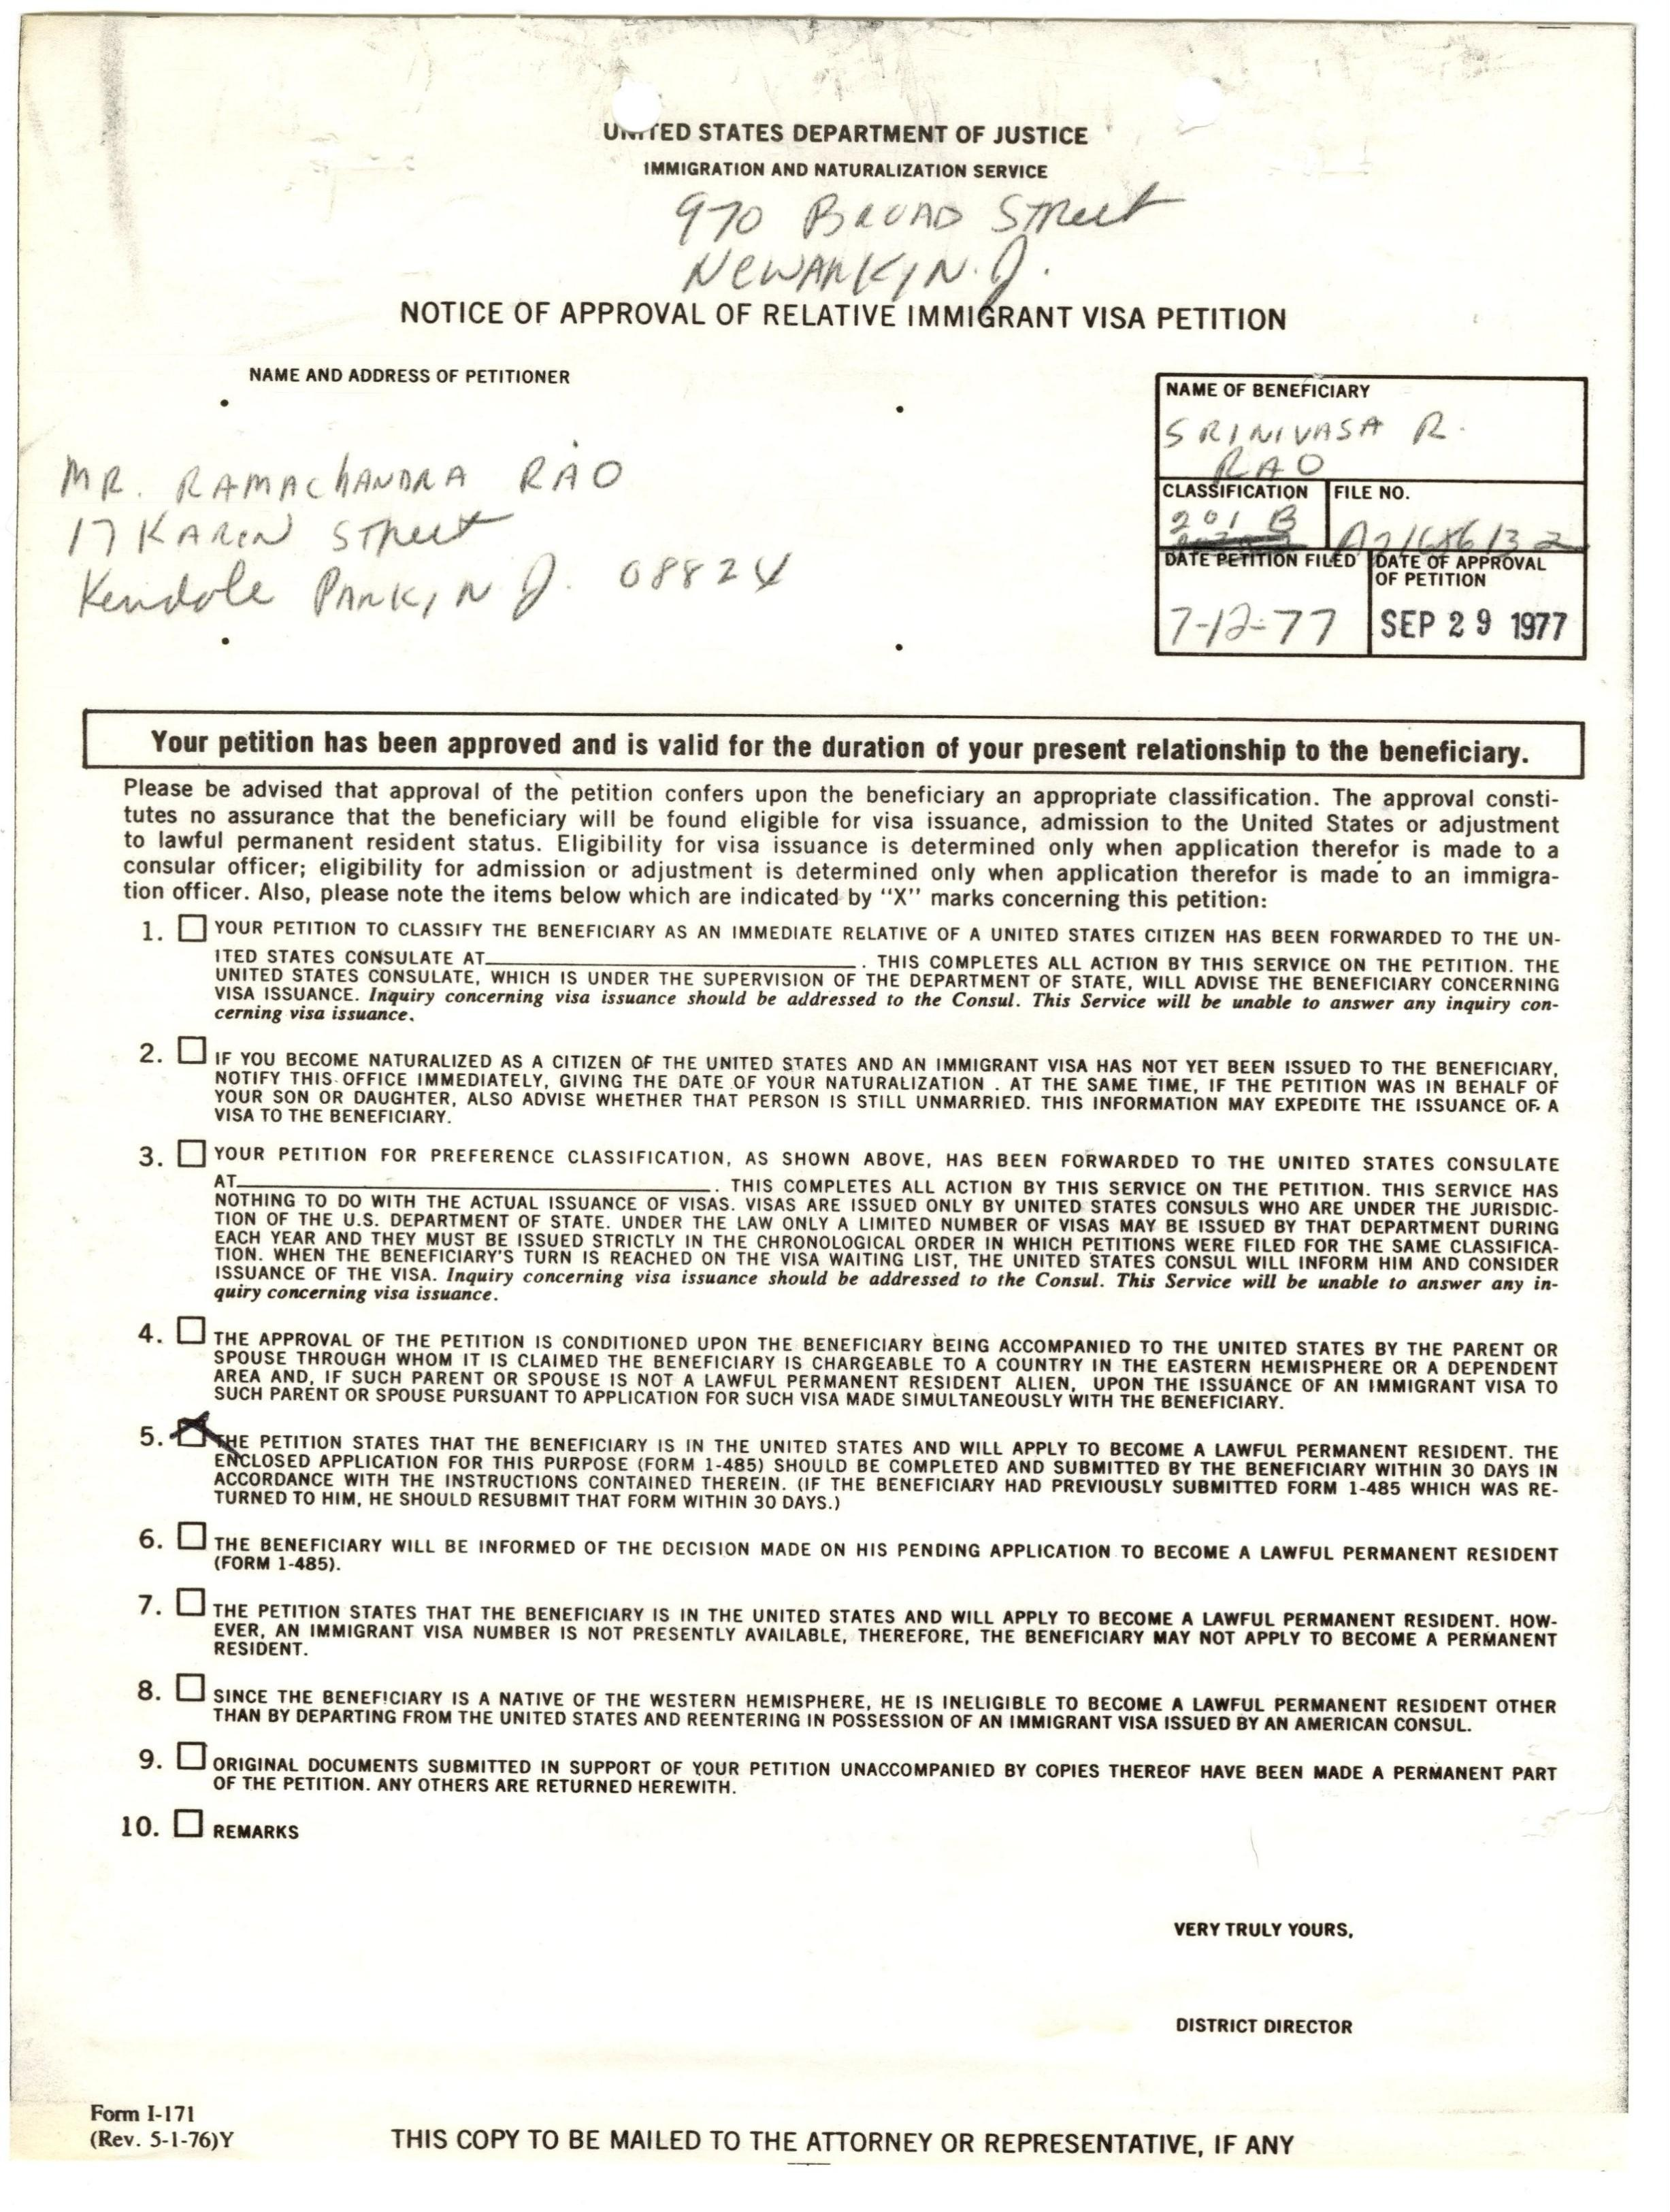 UNITED STATES DEPARTMENT OF JUSTICE
IMMIGRATION AND NATURALIZATION SERVICE
970 BROAD Street
NEWARK, N.J.
NOTICE OF APPROVAL OF RELATIVE IMMIGRANT VISA PETITION
NAME AND ADDRESS OF PETITIONER
MR. RAMACHANDRA RAO
17 KAREN Street
Kendale PARK, N J. 08824
NAME OF BENEFICIARY
SRINIVASA R.
RAO
CLASSIFICATION
201 B
FILE NO.
DATE PETITION FILED
7-12-77
DATE OF APPROVAL
OF PETITION
SEP 29 1977
Your petition has been approved and is valid for the duration of your present relationship to the beneficiary.
Please be advised that approval of the petition confers upon the beneficiary an appropriate classification. The approval consti-
tutes no assurance that the beneficiary will be found eligible for visa issuance, admission to the United States or adjustment
to lawful permanent resident status. Eligibility for visa issuance is determined only when application therefor is made to a
consular officer; eligibility for admission or adjustment is determined only when application therefor is made to an immigra-
tion officer. Also, please note the items below which are indicated by "X" marks concerning this petition:
1. YOUR PETITION TO CLASSIFY THE BENEFICIARY AS AN IMMEDIATE RELATIVE OF A UNITED STATES CITIZEN HAS BEEN FORWARDED TO THE UN-
ITED STATES CONSULATE AT . THIS COMPLETES ALL ACTION BY THIS SERVICE ON THE PETITION. THE
UNITED STATES CONSULATE, WHICH IS UNDER THE SUPERVISION OF THE DEPARTMENT OF STATE, WILL ADVISE THE BENEFICIARY CONCERNING
VISA ISSUANCE. Inquiry concerning visa issuance should be addressed to the Consul. This Service will be unable to answer any inquiry con-
cerning visa issuance.
2. IF YOU BECOME NATURALIZED AS A CITIZEN OF THE UNITED STATES AND AN IMMIGRANT VISA HAS NOT YET BEEN ISSUED TO THE BENEFICIARY,
NOTIFY THIS OFFICE IMMEDIATELY, GIVING THE DATE OF YOUR NATURALIZATION . AT THE SAME TIME, IF THE PETITION WAS IN BEHALF OF
YOUR SON OR DAUGHTER, ALSO ADVISE WHETHER THAT PERSON IS STILL UNMARRIED. THIS INFORMATION MAY EXPEDITE THE ISSUANCE OF A
VISA TO THE BENEFICIARY.
3. YOUR PETITION FOR PREFERENCE CLASSIFICATION, AS SHOWN ABOVE, HAS BEEN FORWARDED TO THE UNITED STATES CONSULATE
AT . THIS COMPLETES ALL ACTION BY THIS SERVICE ON THE PETITION. THIS SERVICE HAS
NOTHING TO DO WITH THE ACTUAL ISSUANCE OF VISAS. VISAS ARE ISSUED ONLY BY UNITED STATES CONSULS WHO ARE UNDER THE JURISDIC-
TION OF THE U.S. DEPARTMENT OF STATE. UNDER THE LAW ONLY A LIMITED NUMBER OF VISAS MAY BE ISSUED BY THAT DEPARTMENT DURING
EACH YEAR AND THEY MUST BE ISSUED STRICTLY IN THE CHRONOLOGICAL ORDER IN WHICH PETITIONS WERE FILED FOR THE SAME CLASSIFICA-
TION. WHEN THE BENEFICIARY'S TURN IS REACHED ON THE VISA WAITING LIST, THE UNITED STATES CONSUL WILL INFORM HIM AND CONSIDER
ISSUANCE OF THE VISA. Inquiry concerning visa issuance should be addressed to the Consul. This Service will be unable to answer any in-
quiry concerning visa issuance.
4. THE APPROVAL OF THE PETITION IS CONDITIONED UPON THE BENEFICIARY BEING ACCOMPANIED TO THE UNITED STATES BY THE PARENT OR
SPOUSE THROUGH WHOM IT IS CLAIMED THE BENEFICIARY IS CHARGEABLE TO A COUNTRY IN THE EASTERN HEMISPHERE OR A DEPENDENT
AREA AND, IF SUCH PARENT OR SPOUSE IS NOT A LAWFUL PERMANENT RESIDENT ALIEN, UPON THE ISSUANCE OF AN IMMIGRANT VISA TO
SUCH PARENT OR SPOUSE PURSUANT TO APPLICATION FOR SUCH VISA MADE SIMULTANEOUSLY WITH THE BENEFICIARY.
5. THE PETITION STATES THAT THE BENEFICIARY IS IN THE UNITED STATES AND WILL APPLY TO BECOME A LAWFUL PERMANENT RESIDENT. THE
ENCLOSED APPLICATION FOR THIS PURPOSE (FORM 1-485) SHOULD BE COMPLETED AND SUBMITTED BY THE BENEFICIARY WITHIN 30 DAYS IN
ACCORDANCE WITH THE INSTRUCTIONS CONTAINED THEREIN. (IF THE BENEFICIARY HAD PREVIOUSLY SUBMITTED FORM 1-485 WHICH WAS RE-
TURNED TO HIM, HE SHOULD RESUBMIT THAT FORM WITHIN 30 DAYS.)
6. THE BENEFICIARY WILL BE INFORMED OF THE DECISION MADE ON HIS PENDING APPLICATION TO BECOME A LAWFUL PERMANENT RESIDENT
(FORM 1-485).
7. THE PETITION STATES THAT THE BENEFICIARY IS IN THE UNITED STATES AND WILL APPLY TO BECOME A LAWFUL PERMANENT RESIDENT. HOW-
EVER, AN IMMIGRANT VISA NUMBER IS NOT PRESENTLY AVAILABLE, THEREFORE, THE BENEFICIARY MAY NOT APPLY TO BECOME A PERMANENT
RESIDENT.
8. SINCE THE BENEFICIARY IS A NATIVE OF THE WESTERN HEMISPHERE, HE IS INELIGIBLE TO BECOME A LAWFUL PERMANENT RESIDENT OTHER
THAN BY DEPARTING FROM THE UNITED STATES AND REENTERING IN POSSESSION OF AN IMMIGRANT VISA ISSUED BY AN AMERICAN CONSUL.
9. ORIGINAL DOCUMENTS SUBMITTED IN SUPPORT OF YOUR PETITION UNACCOMPANIED BY COPIES THEREOF HAVE BEEN MADE A PERMANENT PART
OF THE PETITION. ANY OTHERS ARE RETURNED HEREWITH.
10. REMARKS
VERY TRULY YOURS,
DISTRICT DIRECTOR
Form I-171
(Rev. 5-1-76)Y
THIS COPY TO BE MAILED TO THE ATTORNEY OR REPRESENTATIVE, IF ANY